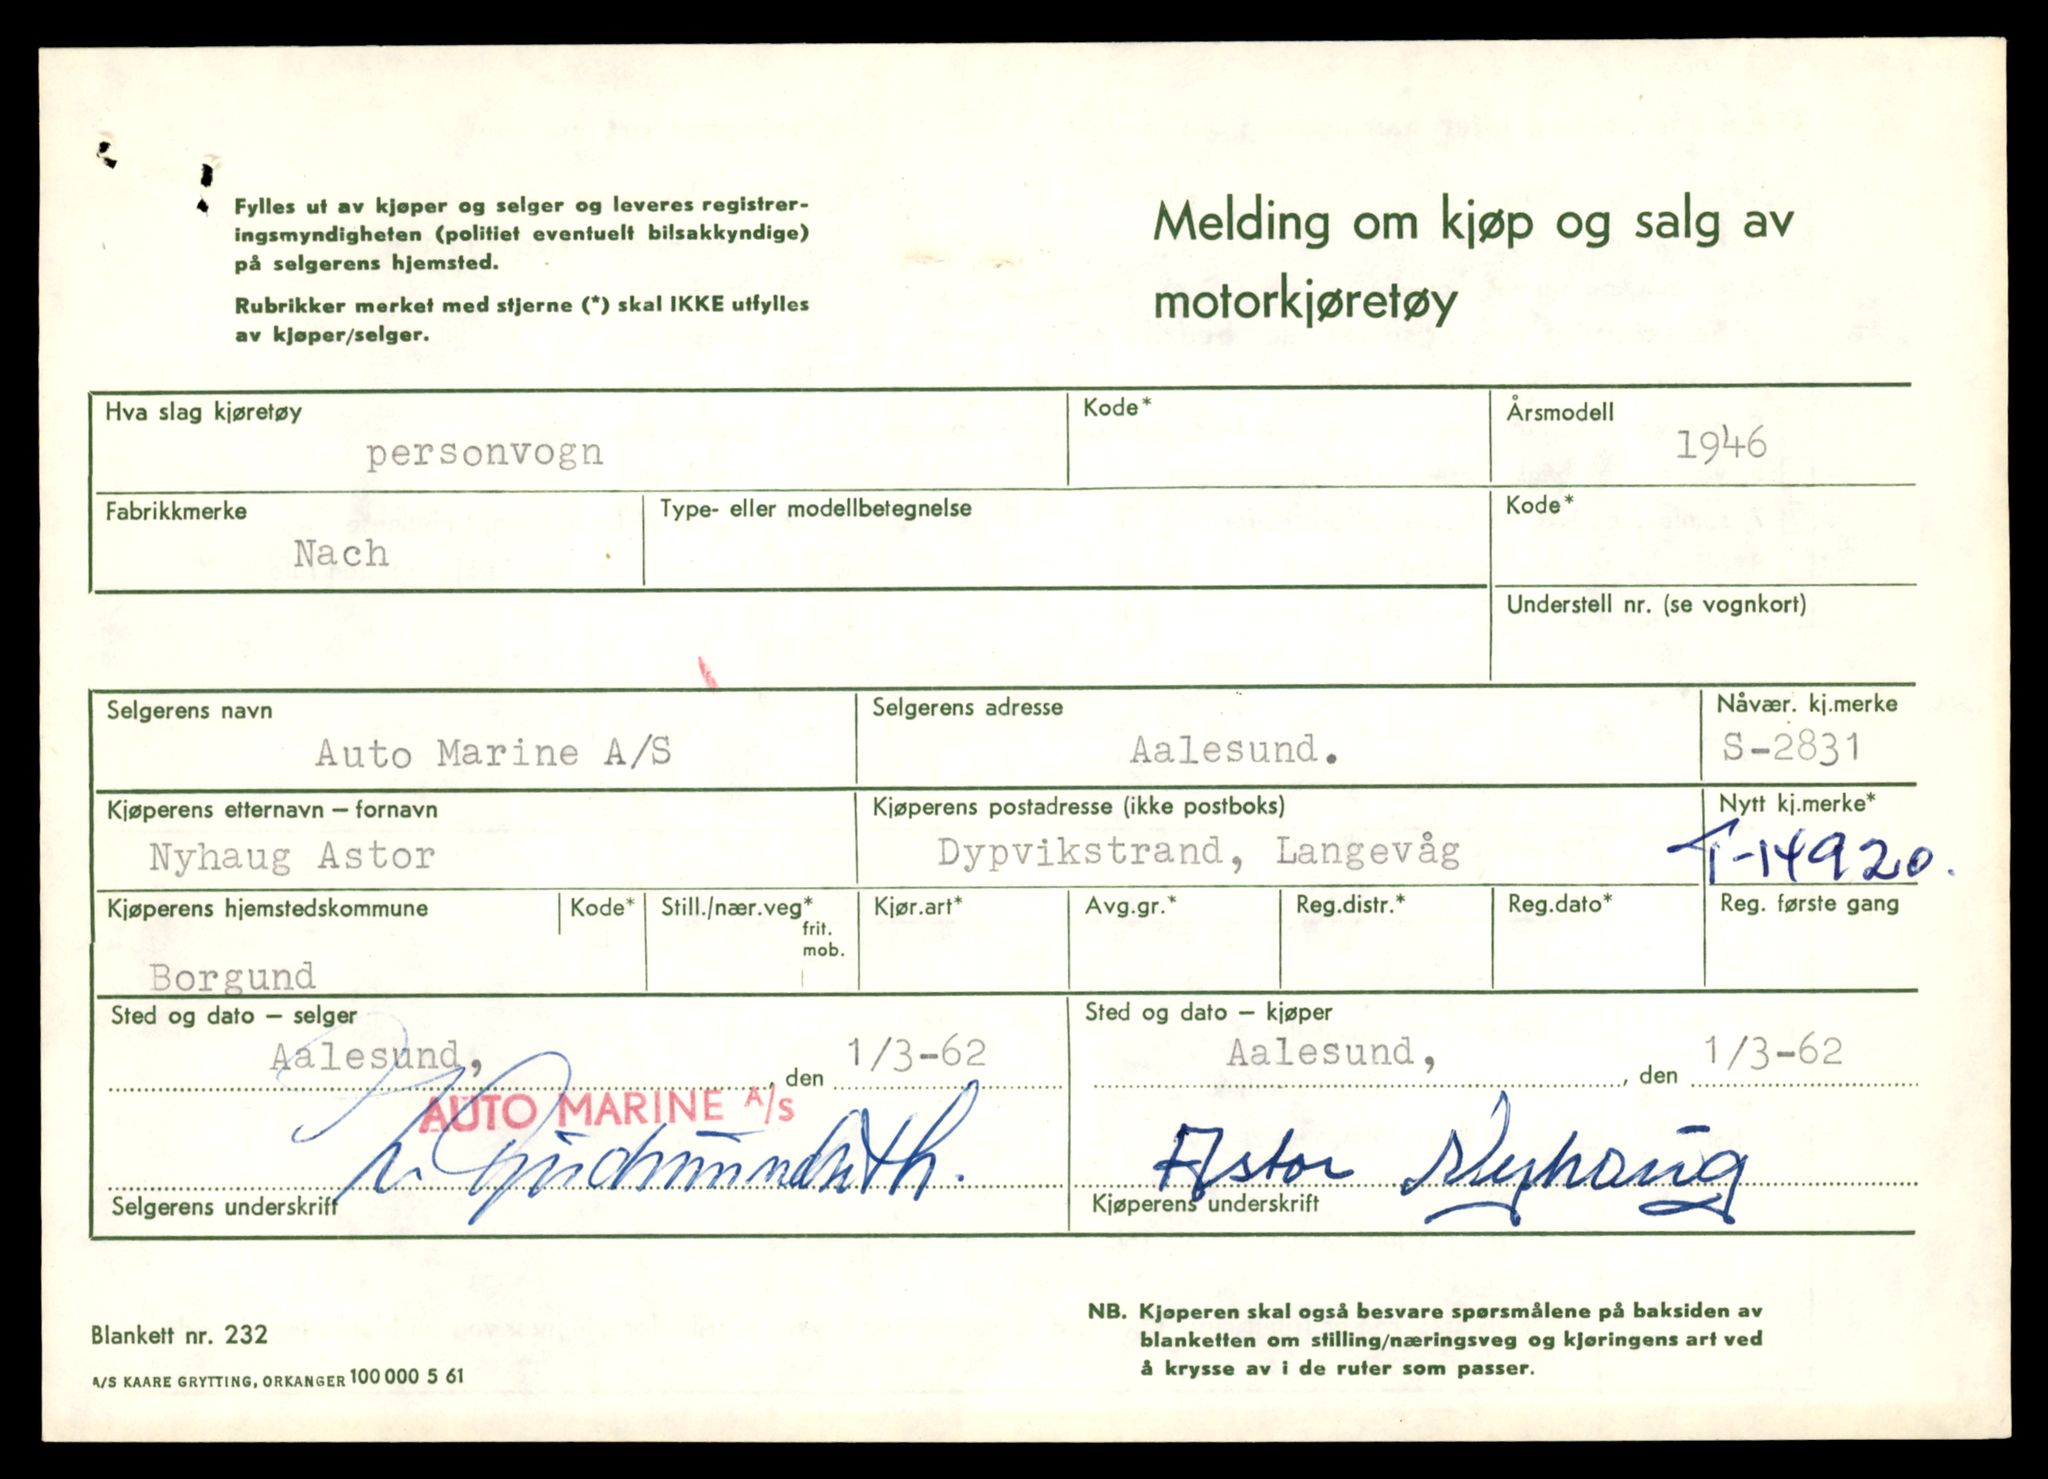 Fylles ut av kjøper og selger og leveres registrer-
ingsmyndigheten (politiet eventuelt bilsakkyndige)
på selgerens hjemsted.
Rubrikker merket med stjerne (*) skal IKKE utfylles
av kjøper/selger.
Melding om kjøp og salg av
motorkjøretøy
Hva slag kjøretøy
personvogn
Kode*
Årsmodell
1946
Fabrikkmerke
Nach
Type- eller modellbetegnelse
Kode*
Understell nr. (se vognkort)
Selgerens navn
Auto Marine A/S
Selgerens adresse
Aalesund.
Nåvær. kj.merke
S-2831
Kjøperens etternavn – fornavn
Nyhaug Astor
Kjøperens postadresse (ikke postboks)
Dypvikstrand, Langevåg
Nytt kj.merke*
T-14920.
Kjøperens hjemstedskommune
Borgund
Kode*
Still./nær.veg*
frit.
mob.
Kjør.art*
Avg.gr.*
Reg.distr.*
Reg.dato*
Reg. første gang
Sted og dato – selger
Aalesund, , den 1/3-62
AUTO MARINE A/S
Selgerens underskrift
Sted og dato – kjøper
Aalesund, , den 1/3-62
Astor Nyhaug
Kjøperens underskrift
Blankett nr. 232
A/S KAARE GRYTTING, ORKANGER 100 000 5 61
NB. Kjøperen skal også besvare spørsmålene på baksiden av
blanketten om stilling/næringsveg og kjøringens art ved
å krysse av i de ruter som passer.